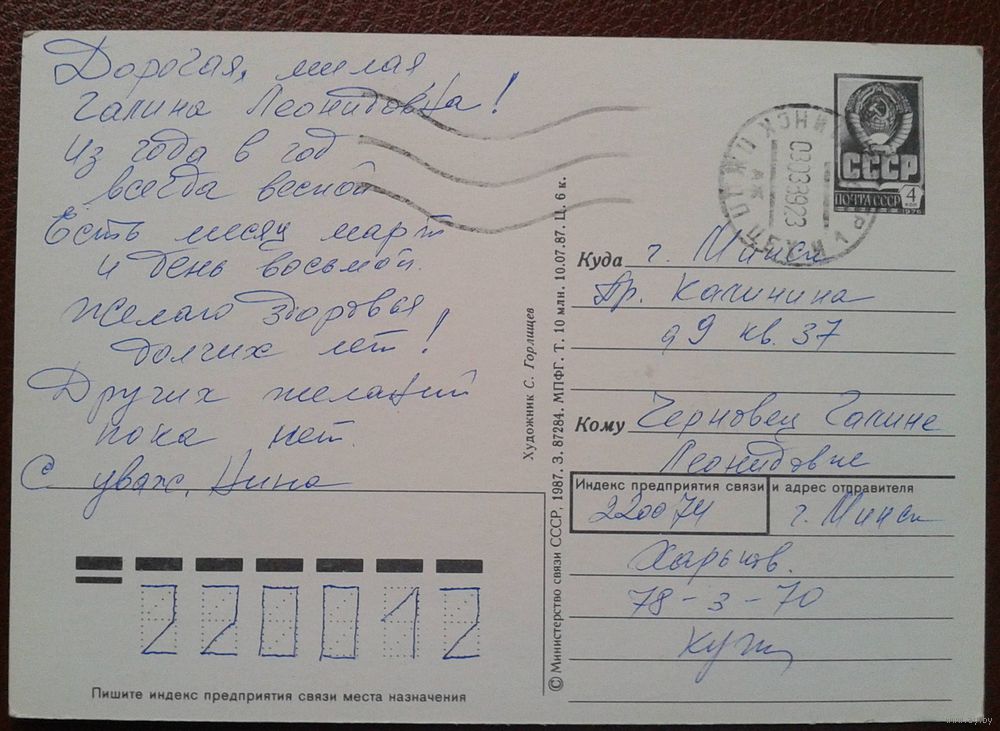 Дорогая, милая
Галина Леонидовна!
Из года в год
всегда весной
Есть месяц март
и день восьмой.
Желаю здоровья
долгих лет!
Других желаний
пока нет.
С уваж. Нина
220012
Пишите индекс предприятия связи места назначения
Художник С. Горлищев
© Министерство связи СССР, 1987. З. 87284. МПФГ. Т. 10 млн. 10.07.87. Ц. 6 к.
СССР
ПОЧТА СССР
4
КОП
1976
МИНСК
03038923
Куда г. Минск
Пр. Калинина
д9 кв. 37
Кому Черновец Галине
Леонидовне
Индекс предприятия связи и адрес отправителя
220074 г. Минск
Харьков.
78-3-70